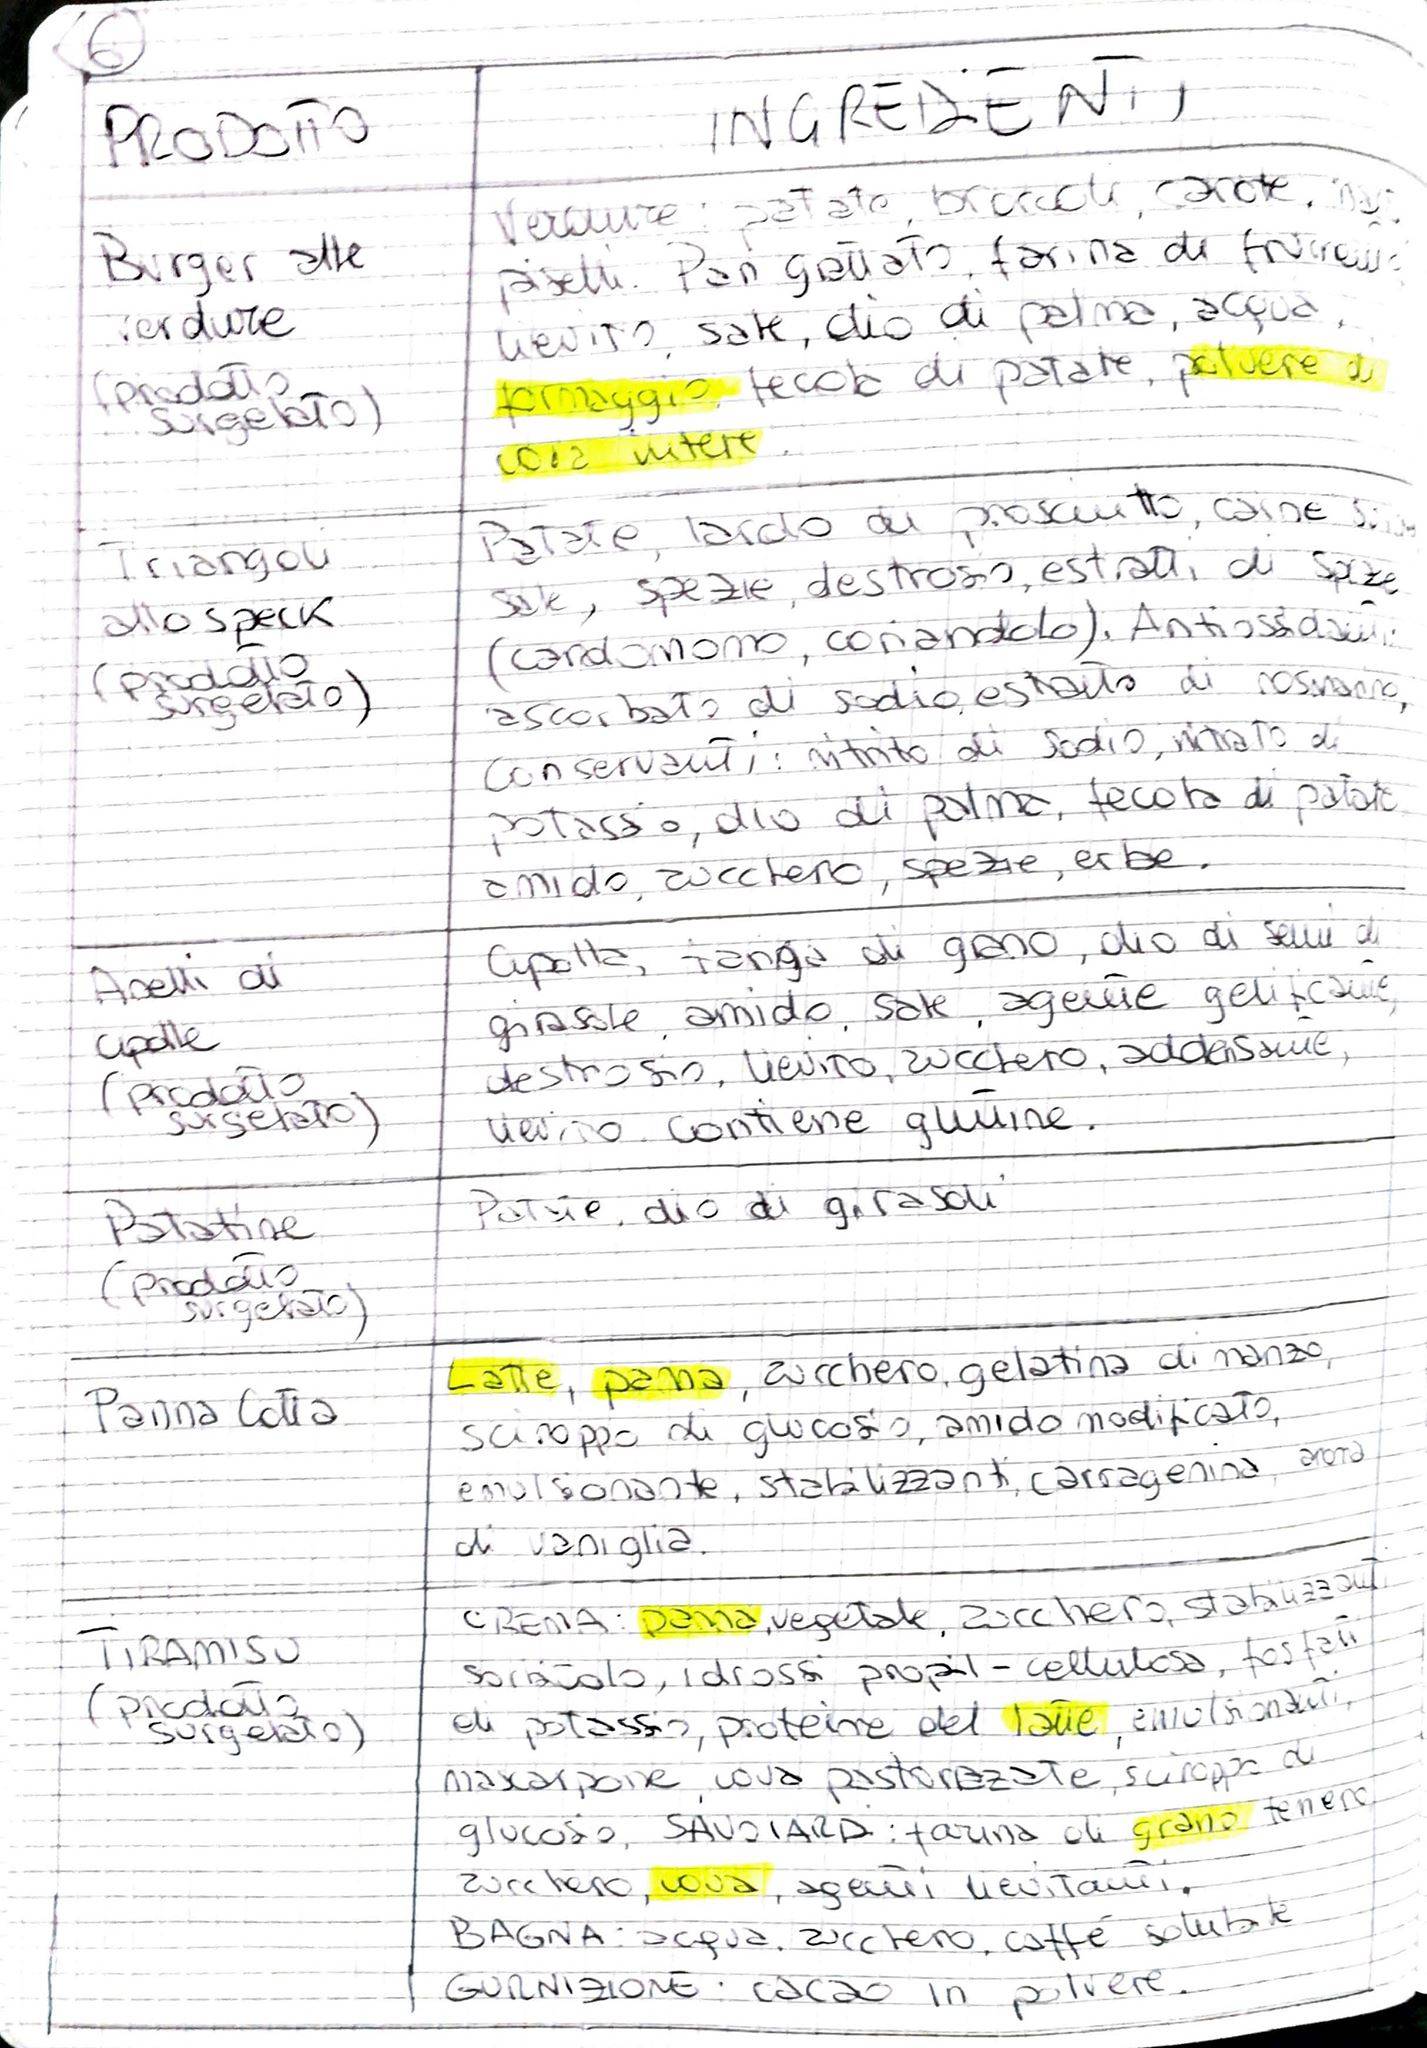 6
PRODOTTO
INGREDIENTI
Burger alle
verdure
(prodotto
surgelato)
Verdure: patate, broccoli, carote, mais,
piselli. Pan grattato, farina di frumento,
lievito, sale, olio di palma, acqua,
formaggio, fecola di patate, polvere di
uova intere.
Triangoli
allo speck
(prodotto
surgelato)
Patate, lardo di prosciutto, carne suina
sale, spezie, destrosio, estratti di spezie
(cardomomo, coriandolo). Antiossidanti:
ascorbato di sodio, estratto di rosmarino,
conservanti: nitrito di sodio, nitrato di
potassio, olio di palma, fecola di patate
amido, zucchero, spezie, erbe.
Anelli di
cipolle
(prodotto
surgelato)
Cipolla, farina di grano, olio di semi di
girasole, amido, sale, agente gelificante,
destrosio, lievito, zucchero, addensante,
lievito. Contiene glutine.
Patatine
(prodotto
surgelato)
Patate, olio di girasoli
Panna Cotta
Latte, panna, zucchero, gelatina di manzo,
sciroppo di glucosio, amido modificato,
emulsionante, stabilizzanti, carragenina, aroma
di vaniglia.
TIRAMISU
(prodotto
surgelato)
CREMA: panna, vegetale, zucchero, stabilizzanti
idrossi propil-cellulosa, fosfati
di potassio, proteine del latte, emulsionanti,
mascarpone, uova pastorizzate, sciroppo di
glucosio, SAVOIARDI: farina di grano tenero
zucchero, uova, agenti lievitanti.
BAGNA: acqua, zucchero, caffé solubile
GURNIZIONE: cacao in polvere.